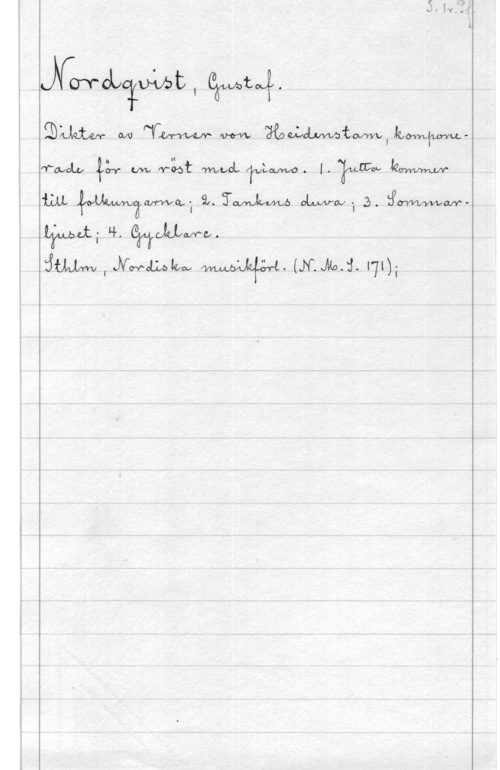 Nordqvist, Gustaf.
Dikter av Verner von Heidenstam, kompone-
rade för en röst med piano. 1. Jutta kommer
till folkungarna; 2. Tankens duva; 3. Sommar-
ljuset; 4. Gycklare.
Sthlm, Nordiska musikförl. (N. M. S. 171);